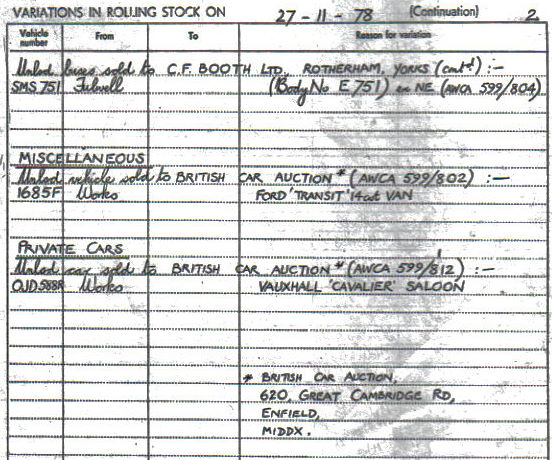 VARIATIONS IN ROLLING STOCK ON 27-11-78 (Continuation) 2
Vehicle number From To Reason for variation
Unlsd buses sold to C.F. BOOTH LTD, ROTHERHAM, YORKS (contd) :-
SMS 751 Fulwell (Body No E751) ex NE (AWCA 599/804)
MISCELLANEOUS
Unlsd vehicle sold to BRITISH CAR AUCTION* (AWCA 599/802) :-
1685F Works FORD 'TRANSIT' 14cwt VAN
PRIVATE CARS
Unlsd car sold to BRITISH CAR AUCTION* (AWCA 599/812) :-
OJD 588R Works VAUXHALL 'CAVALIER' SALOON
* BRITISH CAR AUCTION,
620, GREAT CAMBRIDGE RD,
ENFIELD,
MIDDX.